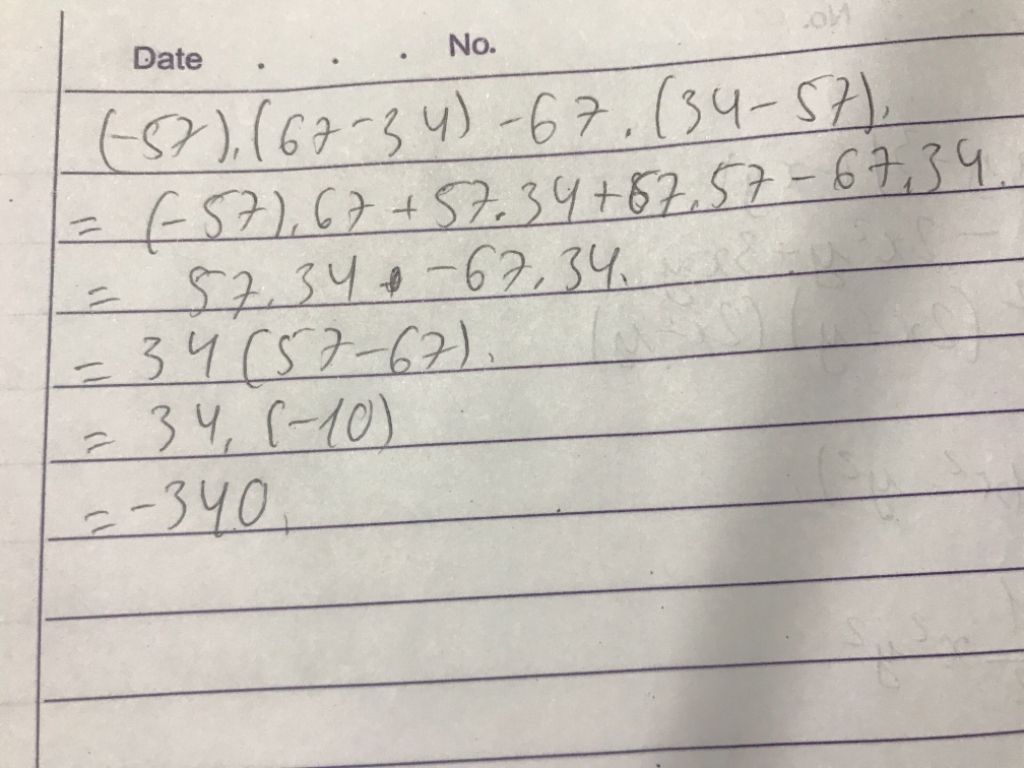 Date . . . No.
(-57).(67-34) -67.(34-57).
= (-57).67+57.34+67.57-67.34.
= 57.34 -67.34.
= 34(57-67).
= 34.(-10)
= -340.